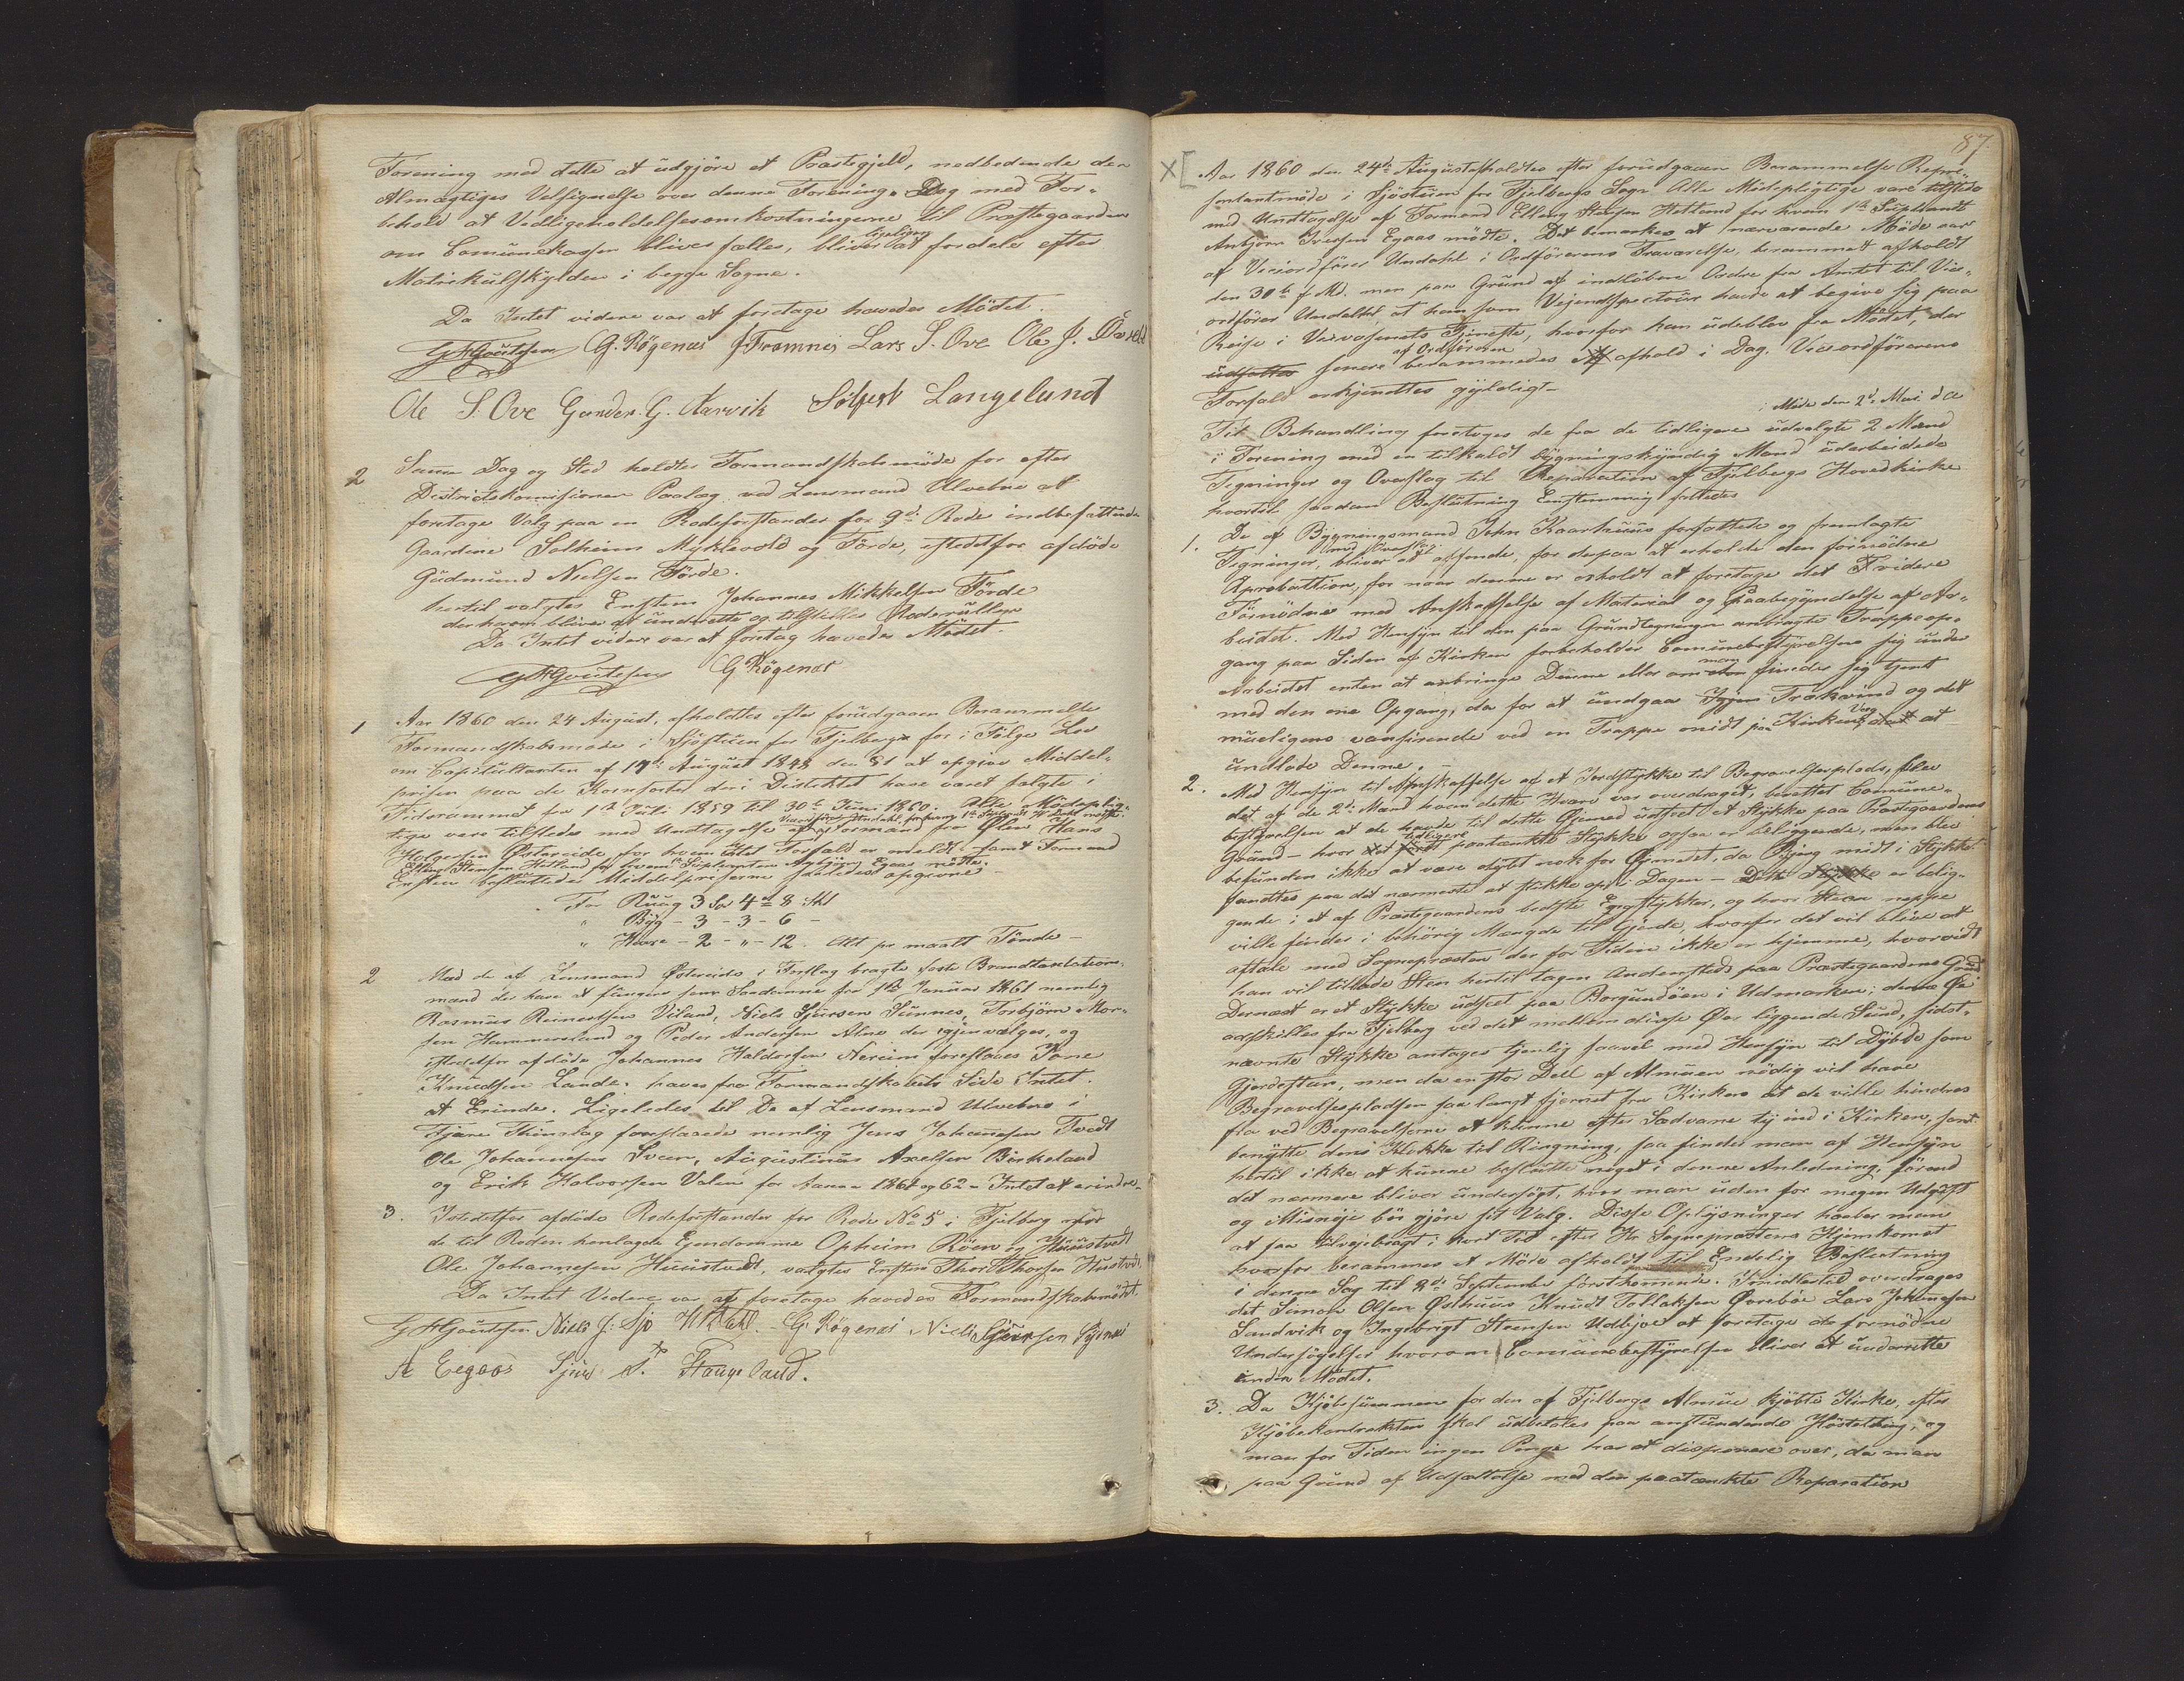 Forening med dette at udgjøre et Præstegjeld, nedbedende den
Almægtiges Velsignelse over denne Forening. Dog med For-
behold at Vedligeholdelsesomkostningerne til Præstegaarden
om Comünekassen blives fælles, bliver ligeligen at fordele efter
Matrikulskylden i begge Sogne.
Da Intet videre var at foretage hævedes Mödet.
G. Røgenes J. Framnes Lars S. Ove Ole J.
Ole S. Ove Gunder. G. Aarvik Langelund
2 Samme Dag og Sted holdtes Formandskabsmöde for efter
Districtskomisionen Paalæg ved Lensmand Ulvebne at
foretage Valg paa en Rodeforstander for 9de Rode indbefattende
Gaardene Solheim Myklevold og Förde, istedetfor afdöde
Gudmund Nielsen Förde.
hertil valgtes Enstem Johannes Mikkelsen Förde
derhvom bliver at underrette og tilstilles Roderullen
Da Intet videre var at foretag hævedes Mödet.
G Røgenes
1 Aar 1860 den 24 August, afholdtes efter forudgaaen Berammelse
Formandskabsmøde i Sjöstuen for Fjelberg for i Følge Lov
om Capitultaxten af 17de August 1848 den § 1 at opgive Middel-
prisen paa de Kornsorter der i Distriktet have været solgte i
Tidsrummet fra 1ste Juli 1859 til 30te Juni 1860. Alle Mödeplig-
tige vare tilstedes med Undtagelse af Formand fra Ølen Hans
Viceordförer Undahl, for hvem 1ste Suplent H Dahl mödte.
Holgersen Østereide for hvem Intet Forfald er meldt samt Formand
Elling Stensen Hetland for hvem Suplenten Anbjörn Egaas mødte.
Enstem besluttedes Middelpriserne saaledes opgivne
For Rüüg 3 Sp 4 8 Skl
" Byg - 3 - 3 - 6 -
" Havre - 2 - " - 12. Alt pr maalt Tönde -
2 Med de af Lensmand Østereide i Forslag bragte faste Brandtaxtations-
mænd der have at fungere som Saadanne fra 1ste Januar 1861 nemlig
Rasmus Reinertsen Viland, Niels Sjursen Sünnes, Torbjörn Mor-
sen Hammersland og Peder Andersen Alne der igjenvælges, og
istedetfor afdöde Johannes Haldorsen Nereim foreslaaes Tore
Knudsen Lande. haves fra Formandskabets Side Intet
at Erindre. Ligeledes til De af Lensmand Ulvebne i
Fjære Thinglag foreslaaede nemlig Jens Johannesen Tvedt
Ole Johannesen Sveen, Augustinus Axelsen Birkeland
og Erik Halvorsen Valen for Aarene 1861 og 62 - Intet at erindre.
3. Istedetfor afdöde Rodeforstander for Rode No 5 i Fjelberg
de til Roden henlagde Ejendomme Opheim Röen og Hüüstvedt
Ole Johannesen Hüüstvedt, valgtes Enstem Thor Thorsen Hustvdt.
Da Intet Videre var at foretage hævedes Formandskabsmödet.
Niels J: Sjo H Dahl. G. Røgenes Niels Sjursen
A Eegaas Sjur S. Haugeland.
87.
Aar 1860 den 24de August afholdtes efter forudgaaen Berammelse Repræ-
sentantmöde i Sjöstuen for Fjelbergs Sogn Alle Mödepligtige vare tilstede
med Undtagelse af Formand Elling Stensen Hetland for hvem 1ste Suplendt
Anbjörn Iversen Egaas mödte. Det bemærkes at nærværende Möde var
af Viceordförer Undahl i Ordförerens Fraværelse, berammet afholdt
den 30te f Md. men paa Grund af indlöben Ordre fra Amtet til Vice-
ordförer Undahl at han som Vejendspecteur havde at begive sig paa
Reise i Veivæsenets Tjeneste, hvorfor han udeblev fra Mödet, der
udsattes senere af Ordföreren berammedes afhold i Dag. Viceordförerens
Forfald erkjendtes gyldigt
Til Behandling foretoges de fra de tidligere i Möde den 2de Mai d A udvalgte 2 Mænd
i Forening med en tilkaldt bygningskyndig Mand udarbeidede
Tegninger og Overslag til Reparation af Fjelbergs Hovedkirke
hvortil saadan Beslutning Eenstemmig fattedes
1. De af Bygningsmand John Kaarhuus forfattede og fremlagte
Tegninger, med Overslag bliver at indsende, for derpaa at erholde den fornödne
Aprobattion, for naar denne er erholdt at foretage det Fvidere
Fornödne med Anskaffelse af Material og Paabegyndelse af Ar-
beidet. Med Hensyn til den paa Grundtegningen antragte Trappeop-
gang paa Siden af Kirken forbeholder Comünebestyrelsen sig under
Arbeidet enten at anbringe Denne eller om man finder sig tjent
med den ene Opgang, da for at undgaa Trækvind og det
mueligens vansirende ved en Trappe midt paa Kirkens Væg at
undlade Denne.
2. Med Hensyn til Anskaffelse af et Jordstykke til Begravelsesplads, blev
det af de 2de Mænd hvem dette Hværv var overdraget, berettet Comüne-
bestyrelsen at de havde til dette Øjemed udseet et Stykke paa Præstegaardens
Grund - hvor det tidligere paatænkte Stykke ogsaa er beliggende, men blev
befunden ikke at være dybt nok for Øjemedet, da Bjerg midt i Stykket
fandtes paa det nærmeste at stikke op i Dagen - Dette Stykke er belig-
gende i et af Præstegaardens bedste Engstykker, og hvor Steen neppe
ville findes i behörig Mængde til Gjerde, hvorfor det vil blive at
aftale med Sognepræsten der for Tiden ikke er hjemme, hvorvidt
han vil tillade Steen hertil tagen Andenstæds paa Præstegaardens Grund.
Dernæst er et Stykke udseet paa Borgundöen i Udmarken; denne Øe
adskilles fra Fjelberg ved det mellem disse Øer liggende Sund, sidst-
nævnte Stykke antages tjenlig saavel med Hensyn til Dybde som
Gjerdesteen, men da en stor Deel af Almuen nödig vil have
Begravelsespladsen saa langt fjernet fra Kirken at de ville hindres
fra ved Begravelserne at kunne efter Sædvane ty ind i Kirken, samt
benytte dens Klokke til Ringning, saa finder man af Hensyn
hertil ikke at kunne beslutte noget i denne Anledning, förend
det nærmere bliver undersögt, hvor man uden for megen Udgift
og Misnöje bör gjöre sit Valg. Disse Oplysninger haaber man
at faa tilvejebragt i kort Tid efter Hr Sognepræstens Hjemkomst
hvorfor berammes et Möde afholdt til Endelig Beslutning
i denne Sag til 8de September förstkomende. Imidlertid overdrages
det Simon Olsen Østhuus Knudt Tollaksen Øvrebøe Lars Johanesen
Sandvik og Ingebrigt Steensen Udbjoe at foretage de fornödne
Undersögelser hvorom Comünebestyrelsen bliver at underrette
inden Mödet.
3. Da Kjøbesummen for den af Fjelbergs Almue kjöbte Kirke, efter
Kjøbekontrakten skal udbetales paa anstundende Hösttthing, og
man for Tiden ingen Penge har at disponere over, da man
paa Grund af Udsættelse med den paatænkte Reparation